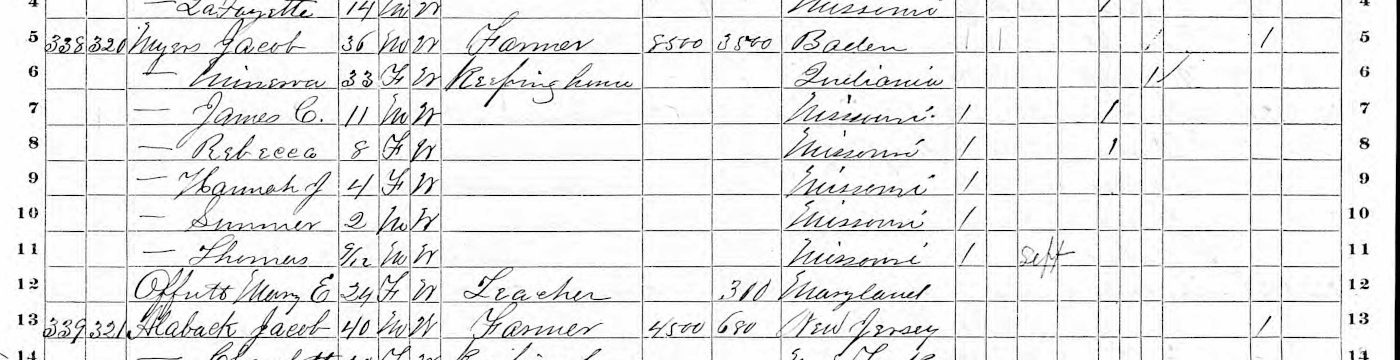 4 — LaFayette 14 M W Missouri 1 4
5 338 320 Myers Jacob 36 M W Farmer 8500 3500 Baden 1 1 1 1 5
6 — Minerva 33 F W Keeping house Indiania 1 / 6
7 — James C. 11 M W Missouri 1 1 7
8 — Rebecca 8 F W Missouri 1 1 8
9 — Hannah J 4 F W Missouri 1 9
10 — Sumner 2 M W Missouri 1 10
11 — Thomas 9/12 M W Missouri 1 Sept 11
12 Offutt Mary E 24 F W Teacher 300 Maryland 12
13 339 321 Alaback Jacob 40 M W Farmer 4500 680 New Jersey 1 13
14 — F W 14